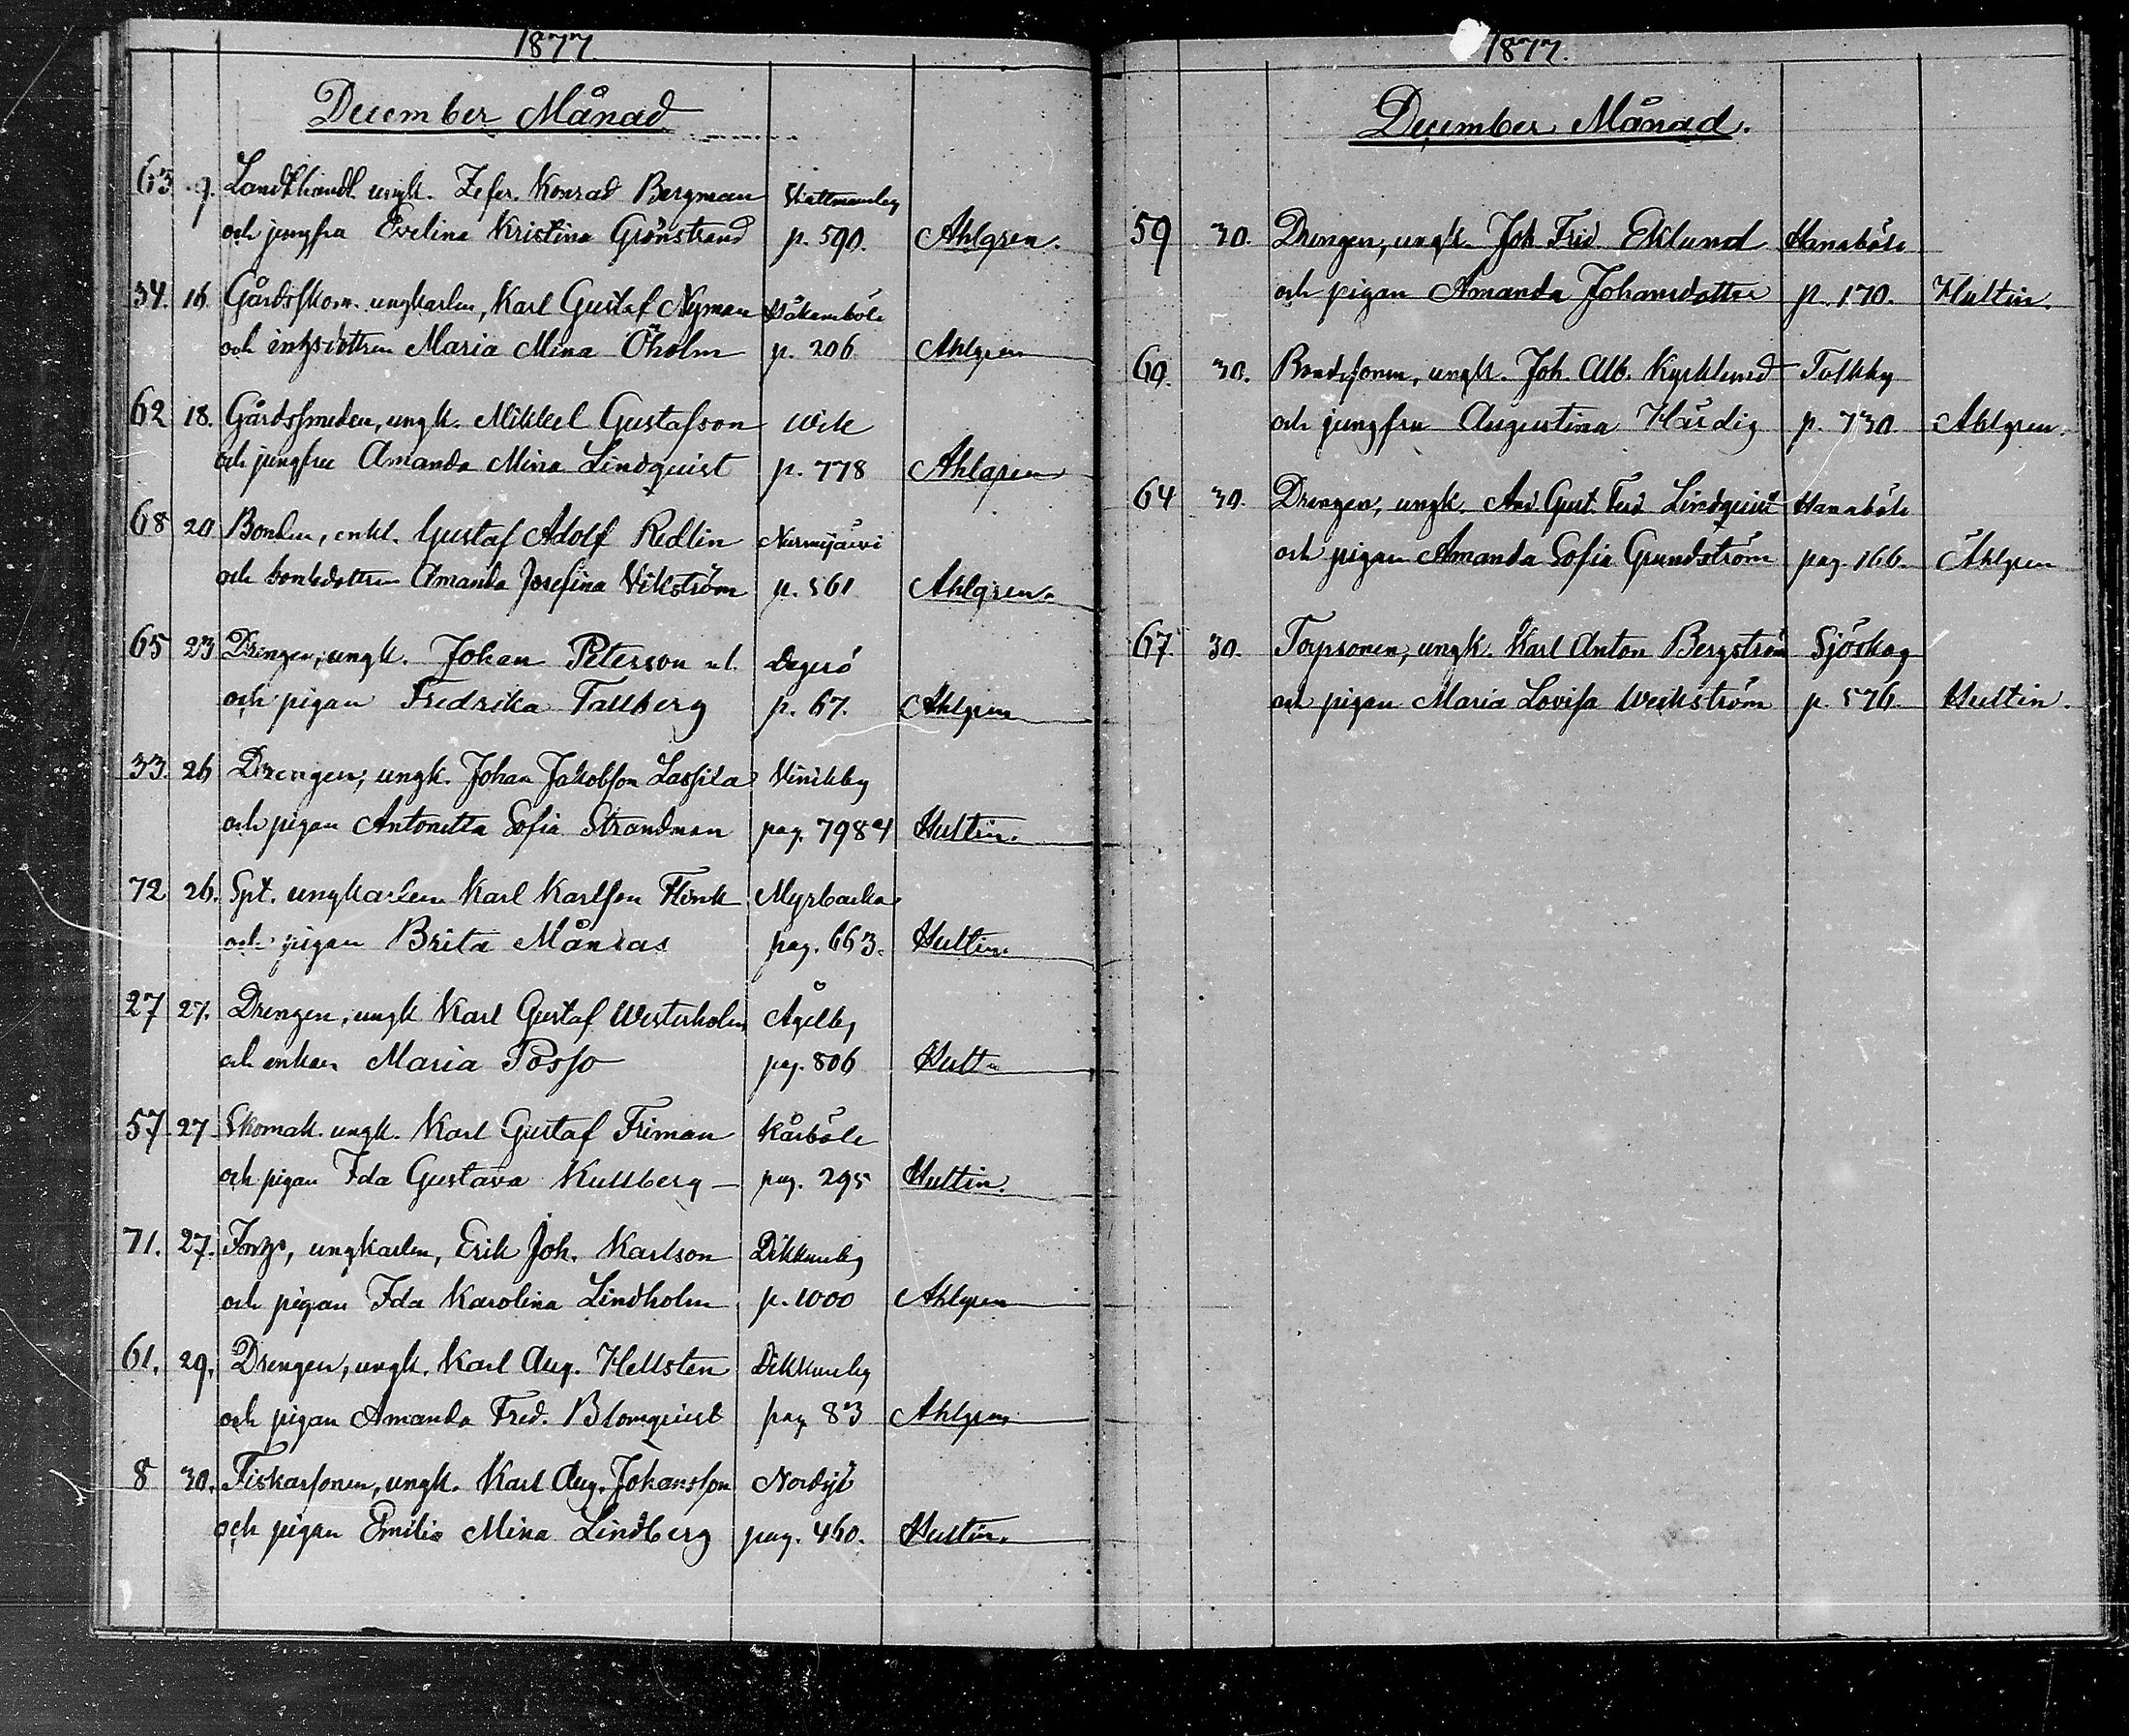 1877.
December Månad
63 9. Landthandl. ungk. Zefr. Konrad Bergman
och jungfru Evelina Kristina Grönstrand p. 590. Ahlgren.
34. 16. Gårdsskom. ungkarlen, Karl Gustaf Nyman Håkansböle
och inhysdottren Maria Mina Öholm p. 206 Ahlgren
62 18. Gårdssmeden, ungk. Mikkel Gustafson Wik
och jungfru Amanda Mina Lindquist p. 778 Ahlgren
68 20 Bonden, enkl. Gustaf Adolf Redlin Nurmijärvi
och bondedottren Amanda Josefina Vikström p. 561 Ahlgren.
65 23 Drengen, ungk. Johan Peterson Degerö
och pigan Fredrika Tallberg p. 67. Ahlgren
33. 26 Drengen, ungk. Johan Jakobsson Lassila Vinikby
och pigan Antonetta Sofia Strandman pag. 798 Hultin.
72 26. Spt. ungkarlen Karl Karlsson Flink Myrbacka
och pigan Brita Månsas pag. 663. Hultin.
27 27. Drengen, ungk Karl Gustaf Westerholm Ågelby
och enkan Maria Posso pag. 806 Hult
57 27 Skomak. ungk. Karl Gustaf Friman Kårböle
och pigan Ida Gustava Kullberg pag. 295 Hultin.
71. 27. ungkarlen, Erik Joh. Karlson Dikkursby
och pigan Ida Karolina Lindholm p. 1000 Ahlgren
61. 29. Drengen, ungk. Karl Aug. Hellsten Dikkursby
och pigan Amanda Fred. Blomquist pag 83 Ahlgren
8 30. Fiskarsonen, ungk. Karl Aug. Johansson Nordsjö
och pigan Emilia Mina Lindberg pag. 460. Hultin.
1877.
December Månad.
59 30. Drengen, ungk. Joh Frid. Eklund Hanaböle
och pigan Amanda Johansdotter p. 170. Hultin.
60. 30. Bondesonen, ungk. Joh. Alb. Kyrklund Tolkby
och jungfru Augustina Härdig p. 730. Ahlgren.
64 30. Drengen, ungk. And. Gust. Ferd Lindquist Hanaböle
och pigan Amanda Sofia Grundström pag. 166. Ahlgren
67. 30. Torpsonen, ungk. Karl Anton Bergström Sjöskog
och pigan Maria Lovisa Weckström p. 576. Hultin.